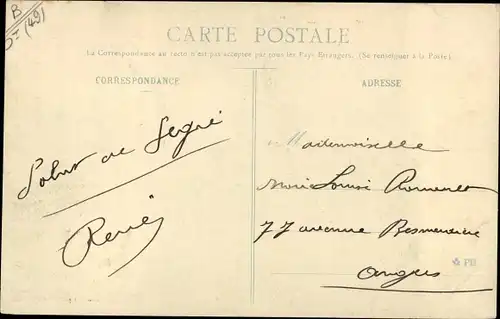 B
Dt (49)
CARTE POSTALE
La Correspondance au recto n'est pas acceptée par tous les Pays Etrangers. (Se renseigner à la Poste)
CORRESPONDANCE
ADRESSE
Salut de Segré
René
Mademoiselle
Marie Louise
77 avenue
Angers
PH